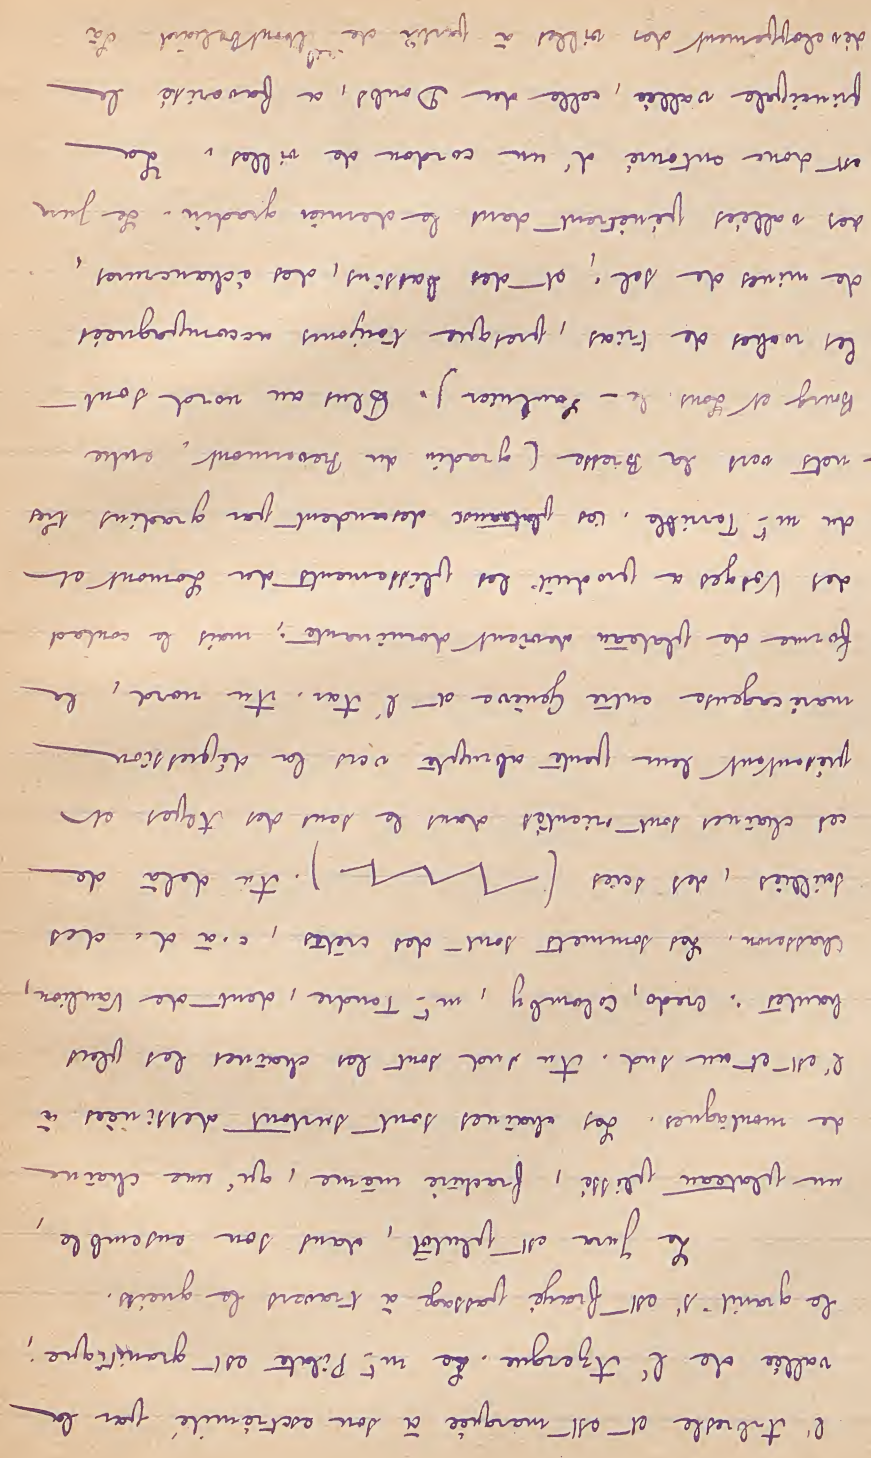 l'Arbresle et est marquée à son extrémité par la
vallée de l'Azergue. Le mt Pilate est granitique ;
le granit s'est frayé passage à travers le gneiss.
Le Jura est plutôt, dans son ensemble,
un plateau plissé, fracturé même, qu'une chaîne
de montagnes. Les chaînes sont surtout dessinées à
l'est et au sud. Au sud sont les chaînes les plus
hautes : Credo, Colomby, mt Tendre, dent de Vaulion,
Chasseron. Les sommets sont des crêtes, c.à d. des
saillies, des scies ( ). Au delà de
ces chaînes sont orientés dans le sens des Alpes et
présentent leur pente abrupte vers la dépression
marécageuse entre Genève et l'Aar. Au nord, la
forme de plateau devient dominante ; mais le contact
des Vosges a produit les plissements du Lomont et
du mt Terrible. Ces plateaux descendent par gradins très
- nets vers la Bresse (gradin du Revermont, entre
Bourg et Lons-le-Saulnier). Plus au nord sont
les roches de trias, presque toujours accompagnées
de mines de sel ; et des bassins, des échancrures,
des vallées pénètrent dans le dernier gradin. Le Jura
est donc entouré d'un cordon de villes. La
principale vallée, celle du Doubs, a favorisé le
développement des villes à partir de Montbéliard